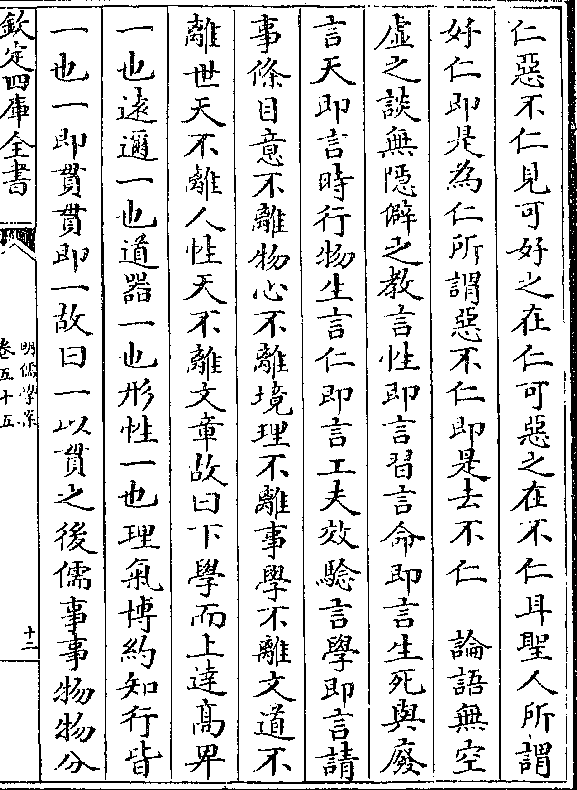 仁惡不仁見可好之在仁可惡之在不仁耳聖人所謂
好仁即是為仁所謂惡不仁即是去不仁　論語無空
虛之談無隱僻之教言性即言習言命即言生死與廢
言天即言時行物生言仁即言工夫效驗言學即言請
事條目意不離物心不離境理不離事學不離文道不
離世天不離人性天不離文章故曰下學而上達高畀
一也遠邇一也道器一也形性一也理氣博約知行皆
一也一即貫貫即一故曰一以貫之後儒事事物物分
欽定四庫全書
明儒學案
卷五十五
十二